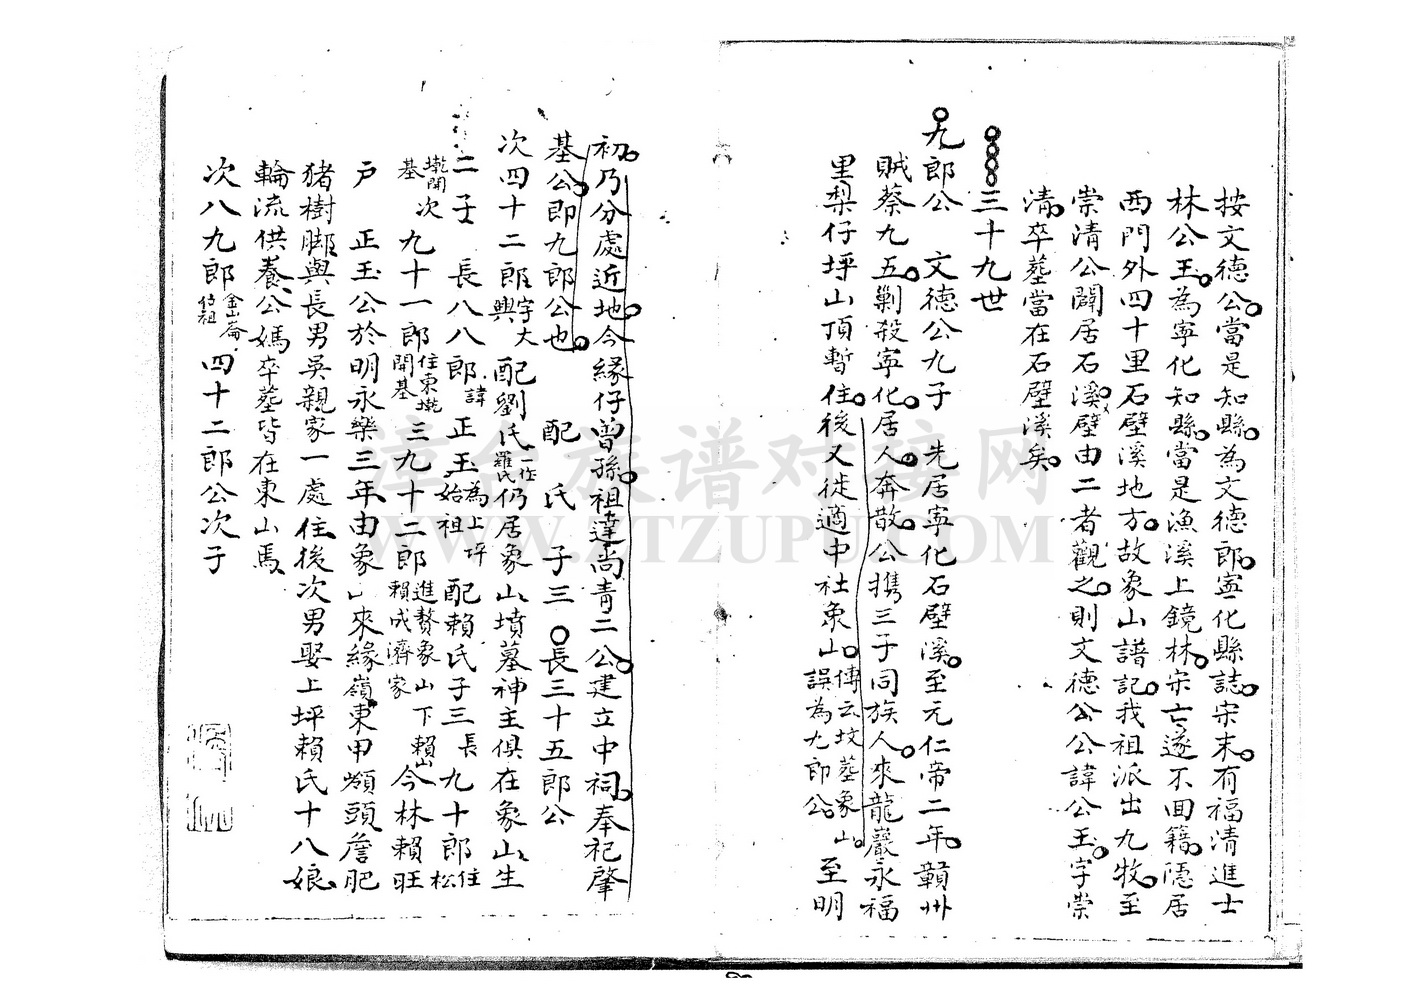 按文德公當是知縣為文德郎寧化縣誌宋末有福清進士
林公玉為寧化知縣當是漁溪上鏡林宋亡遂不回籍隱居
西門外四十里石壁溪地方故象山譜記我祖派出九牧至
崇清公闢居石溪壁由二者觀之則文德公公諱公玉字崇
清卒墓當在石壁溪矣
三十九世
九郎公 文德公九子 先居寧化石壁溪至元仁帝二年贛州
賊蔡九五剿殺寧化居人奔散公攜三子同族人來龍巖永福
里梨仔坪山頂暫住後又徙適中社象山傳云坟墓象山誤為九郎公至明
初乃分處近地今緣仔曾孫祖達尚青二公建立中祠奉祀肇
基公即九郎公也 配 氏 子三 長三十五郎公
次四十二郎字大興 配劉氏一作羅氏仍居象山墳墓神主俱在象山生
二子 長八八郎諱正玉為上坪始祖 配賴氏子三長九十郎住松
墘開基 次九十一郎住東墘開基 三九十二郎進贅象山下賴山賴成濟家今林賴旺
戶 正玉公於明永樂三年由象山來緣嶺東甲瀬頭詹肥
豬樹腳與長男吳親家一處住後次男娶上坪賴氏十八娘
輪流供養公媽卒墓皆在東山馬
次八九郎金山崙佔祖 四十二郎公次子
漳台族谱对接网
WWW.ZTZUPU.COM